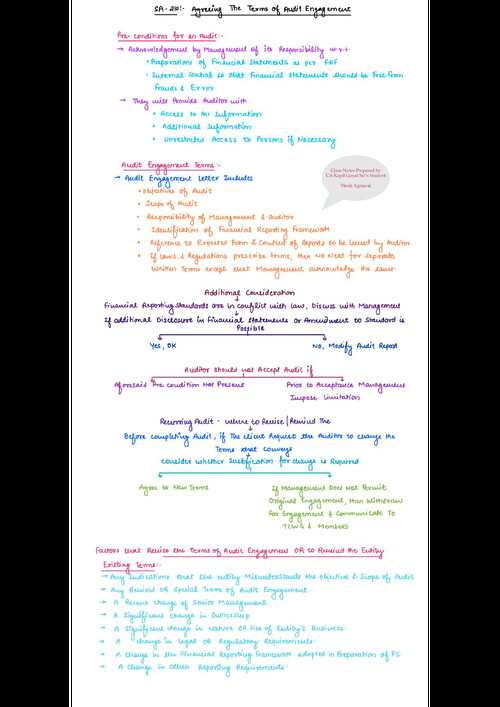 SA-210:- Agreeing The Terms of Audit Engagement
Pre-conditions for an Audit:-
→ Acknowledgement by Management of its Responsibility w.r.t.
• Preparations of Financial Statements as per FRF
• Internal Control so that Financial Statements should be Free From
Frauds & Error
→ They will Provide Auditor with
• Access to all Information
• Additional Information
• Unrestricted Access to Persons if Necessary
Class Notes Prepared by
CA Kapil Goyal Sir's Student
Vivek Agrawal
Audit Engagement Terms:-
→ Audit Engagement Letter Includes
• Objectives of Audit
• Scope of Audit
• Responsibility of Management & Auditor
• Identification of Financial Reporting Framework
• Reference to Expected Form & Content of Reports to be Issued by Auditor
• If Laws & Regulations prescribe terms, then NO Need for Separate
Written Terms except that Management acknowledge the same
Additional Consideration
Financial Reporting Standards are in conflict with Law, Discuss with Management
If additional Disclosure in Financial Statements or Amendment to Standard is
Possible
Yes, OK
No, Modify Audit Report
Auditor should not Accept Audit if
Aforesaid Pre condition Not Present
Prior to Acceptance Management
Impose Limitation
Recurring Audit - Where to Revise | Remind The
Before completing Audit, if The client Request the Auditor to change the
Terms that Conveys
Consider whether Justification for change is Required
Agree to New Terms
If Management Does Not Permit
Original Engagement, then Withdraw
For Engagement & Communicate To
TCWG & Members
Factors that Revise the Terms of Audit Engagement OR to Remind the Entity
Existing Terms:-
→ Any Indications that the entity Misunderstands the objective & Scope of Audit
→ Any Revised OR Special Terms of Audit Engagement
→ A Recent change of Senior Management
→ A Significant change in Ownership
→ A Significant change in Nature OR Size of Entity's Business
→ A change in Legal OR Regulatory Requirements
→ A change in the Financial Reporting Framework adopted in Preparation of FS
→ A change in other Reporting Requirements